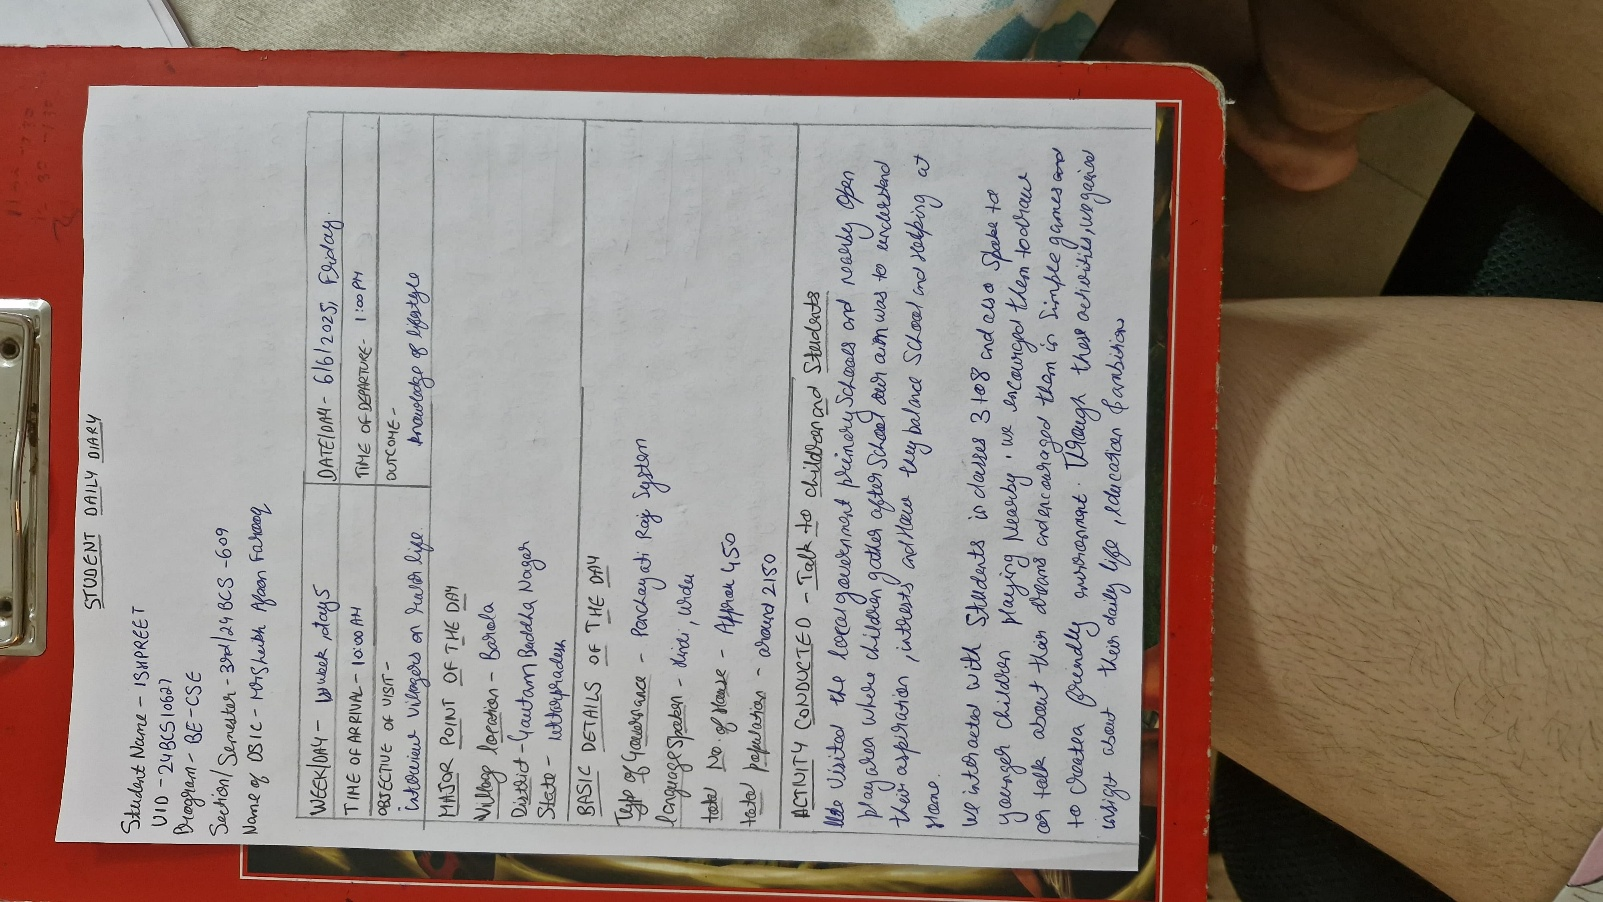 STUDENT DAILY DIARY
Student Name - ISHPREET
UID - 24BCS10627
Program - BE-CSE
Section/Semester - 3rd/24BCS-609
Name of DSIC - Mr Sheikh Afaan Farooq
WEEK/DAY - week, day5
DATE/DAY - 6/6/2025, Friday.
TIME OF ARRIVAL - 10:00 AM
TIME OF DEPARTURE - 1:00 PM
OBJECTIVE OF VISIT -
interview villagers on rural life.
OUTCOME -
knowledge of lifestyle
MAJOR POINT OF THE DAY
Village location - Barola
District - Gautam Buddha Nagar
State - Uttarpradesh
BASIC DETAILS OF THE DAY
Type of Governance - Panchayati Raj System
language Spoken - Hindi, Urdu
total No. of House - Approx 450
total population - around 2150
ACTIVITY CONDUCTED - Talk to children and Students
We visited the local government primary schools and nearby open
play area where children gather after school our aim was to understand
their aspiration, intrests and How they balance school and helping at
Home.
We interacted with Students in classes 3 to 8 and also Spoke to
younger children playing Nearby. we encouraged them to draw
or talk about their dreams and encouraged them in simple games and
to create a friendly environment. Through these activities, we gained
insight about their daily life, education & ambition